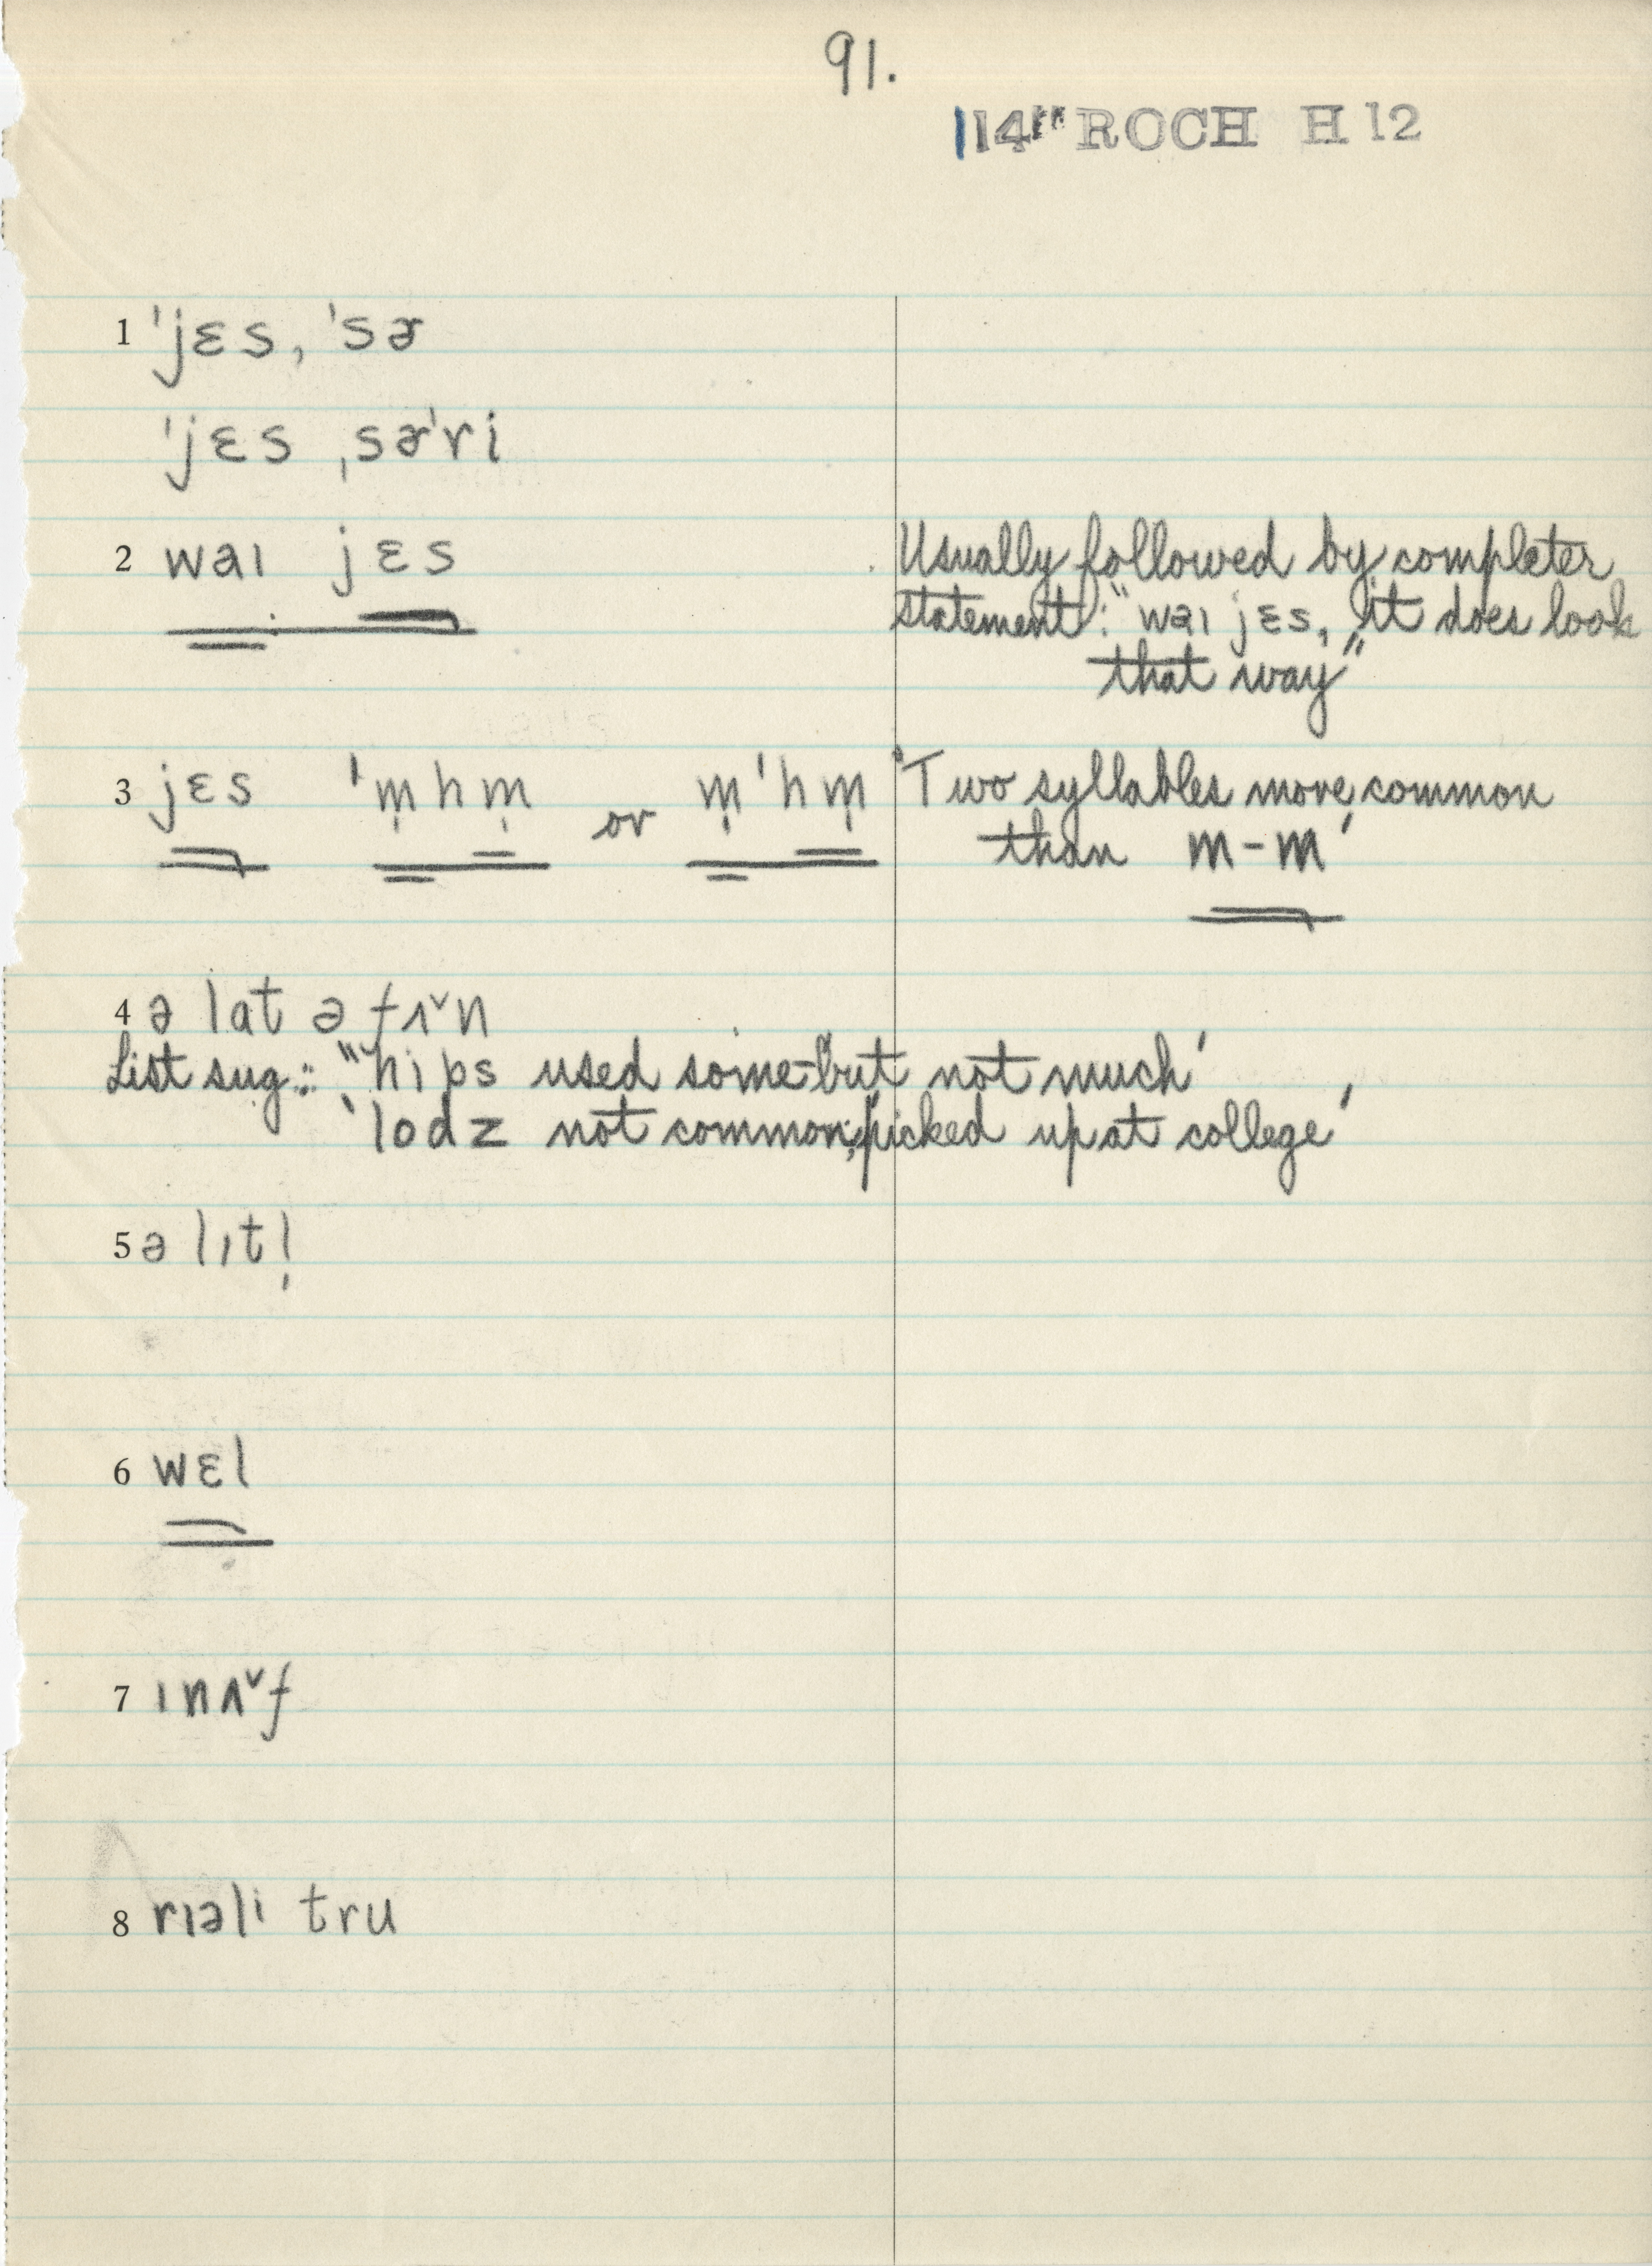 91.
114" ROCH H 12
1 ˈjɛs, ˈsɚ
ˈjɛs ˌsɚˈri
2 waɪ jɛs
Usually followed by completer
statement: "waɪ jɛs, it does look
that way"
3 jɛs ˈm̩hm̩ or m̩ˈhm̩
'Two syllables more common
than m-m'
4 ə lat ə fʌˇn
List sug.: "hips used some-but not much'
'lodz not common; picked up at college'
5 ə lɪtl̩
6 wɛl
7 ɪnʌˇf
8 rɪəli tru